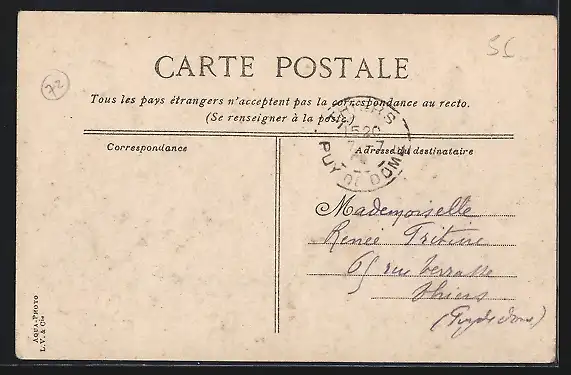 72
CARTE POSTALE
Tous les pays étrangers n'acceptent pas la correspondance au recto.
(Se renseigner à la poste.)
THIERS
PUY DE DOME
Correspondance
Adresse du destinataire
Mademoiselle
Renée
65 rue terrasse
Thiers
(Puy de dome)
AQUA-PHOTO
L.V. & Cie